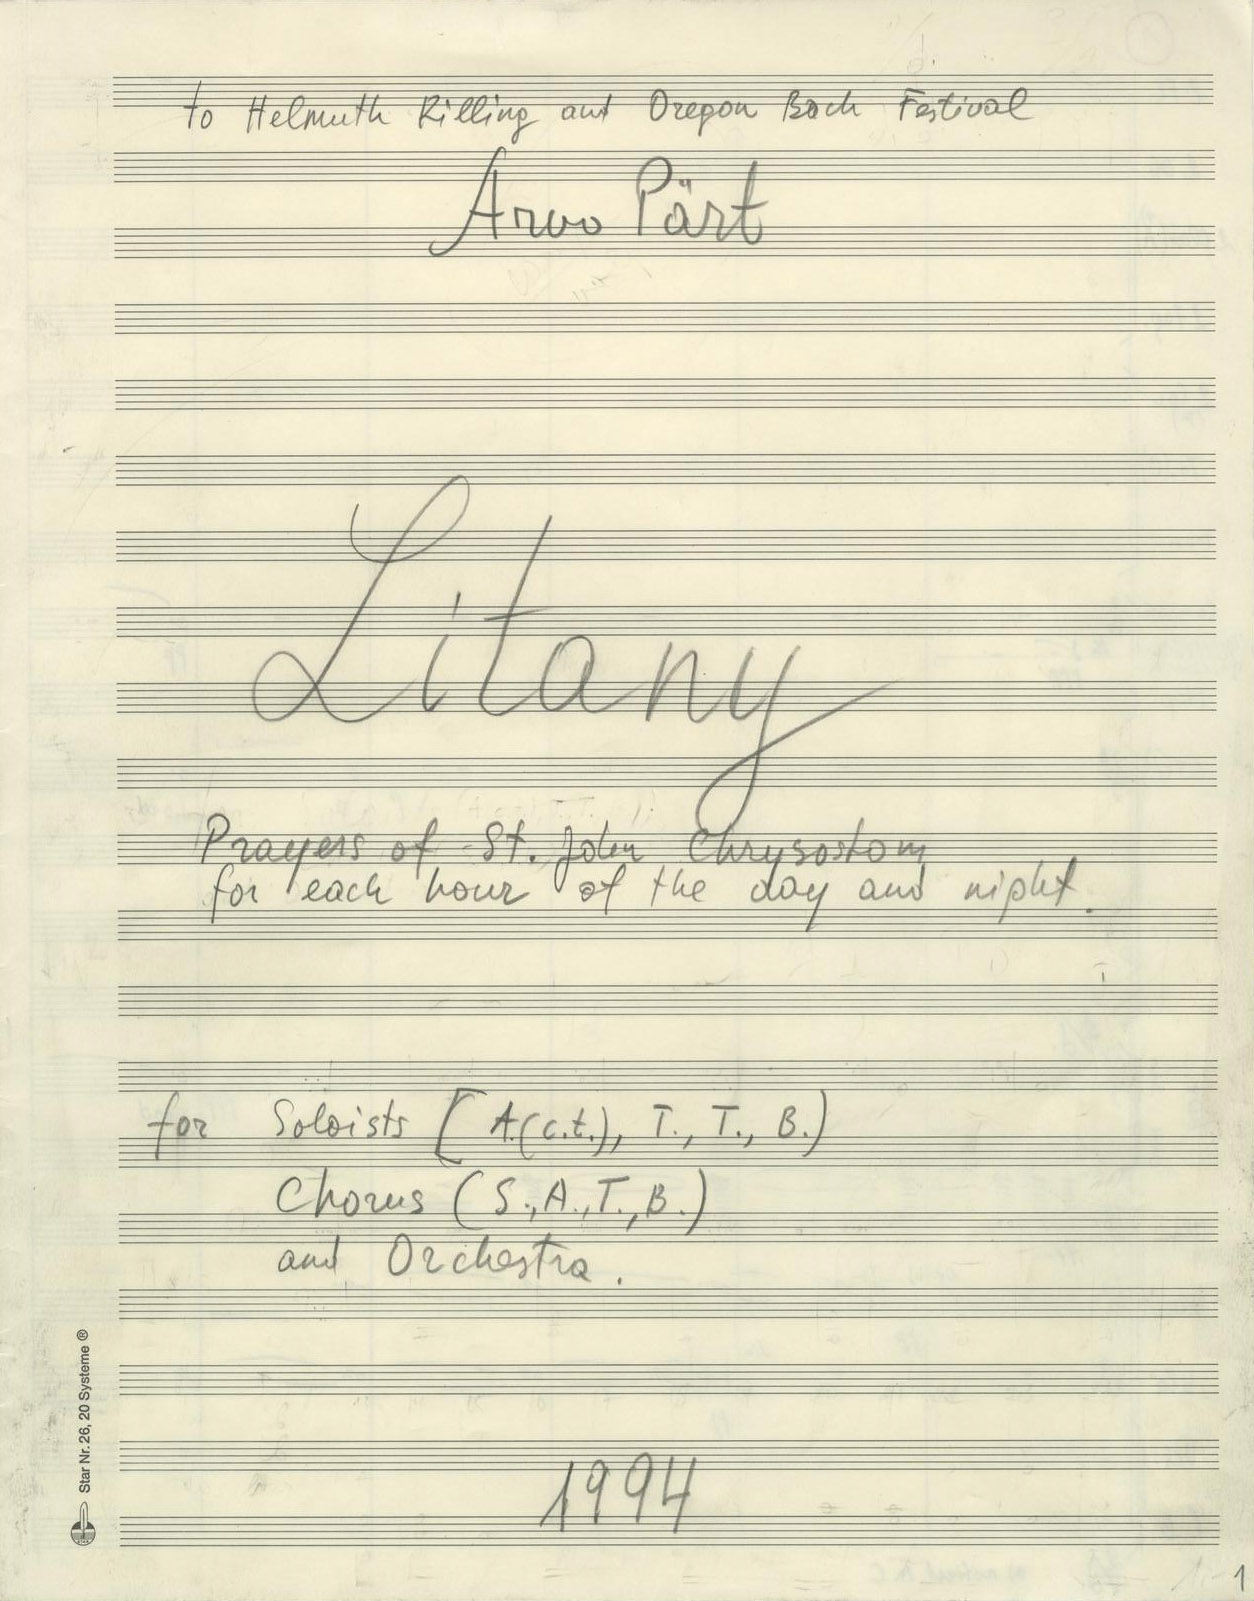 to Helmuth Rilling and Oregon Bach Festival
Arvo Pärt
Litany
Prayers of St. John Chrysostom
for each hour of the day and night.
for Soloists [A.(c.t.), T., T., B.)
Chorus (S., A., T., B.)
and Orchestra.
1994
Star Nr. 26, 20 Systeme ®
1